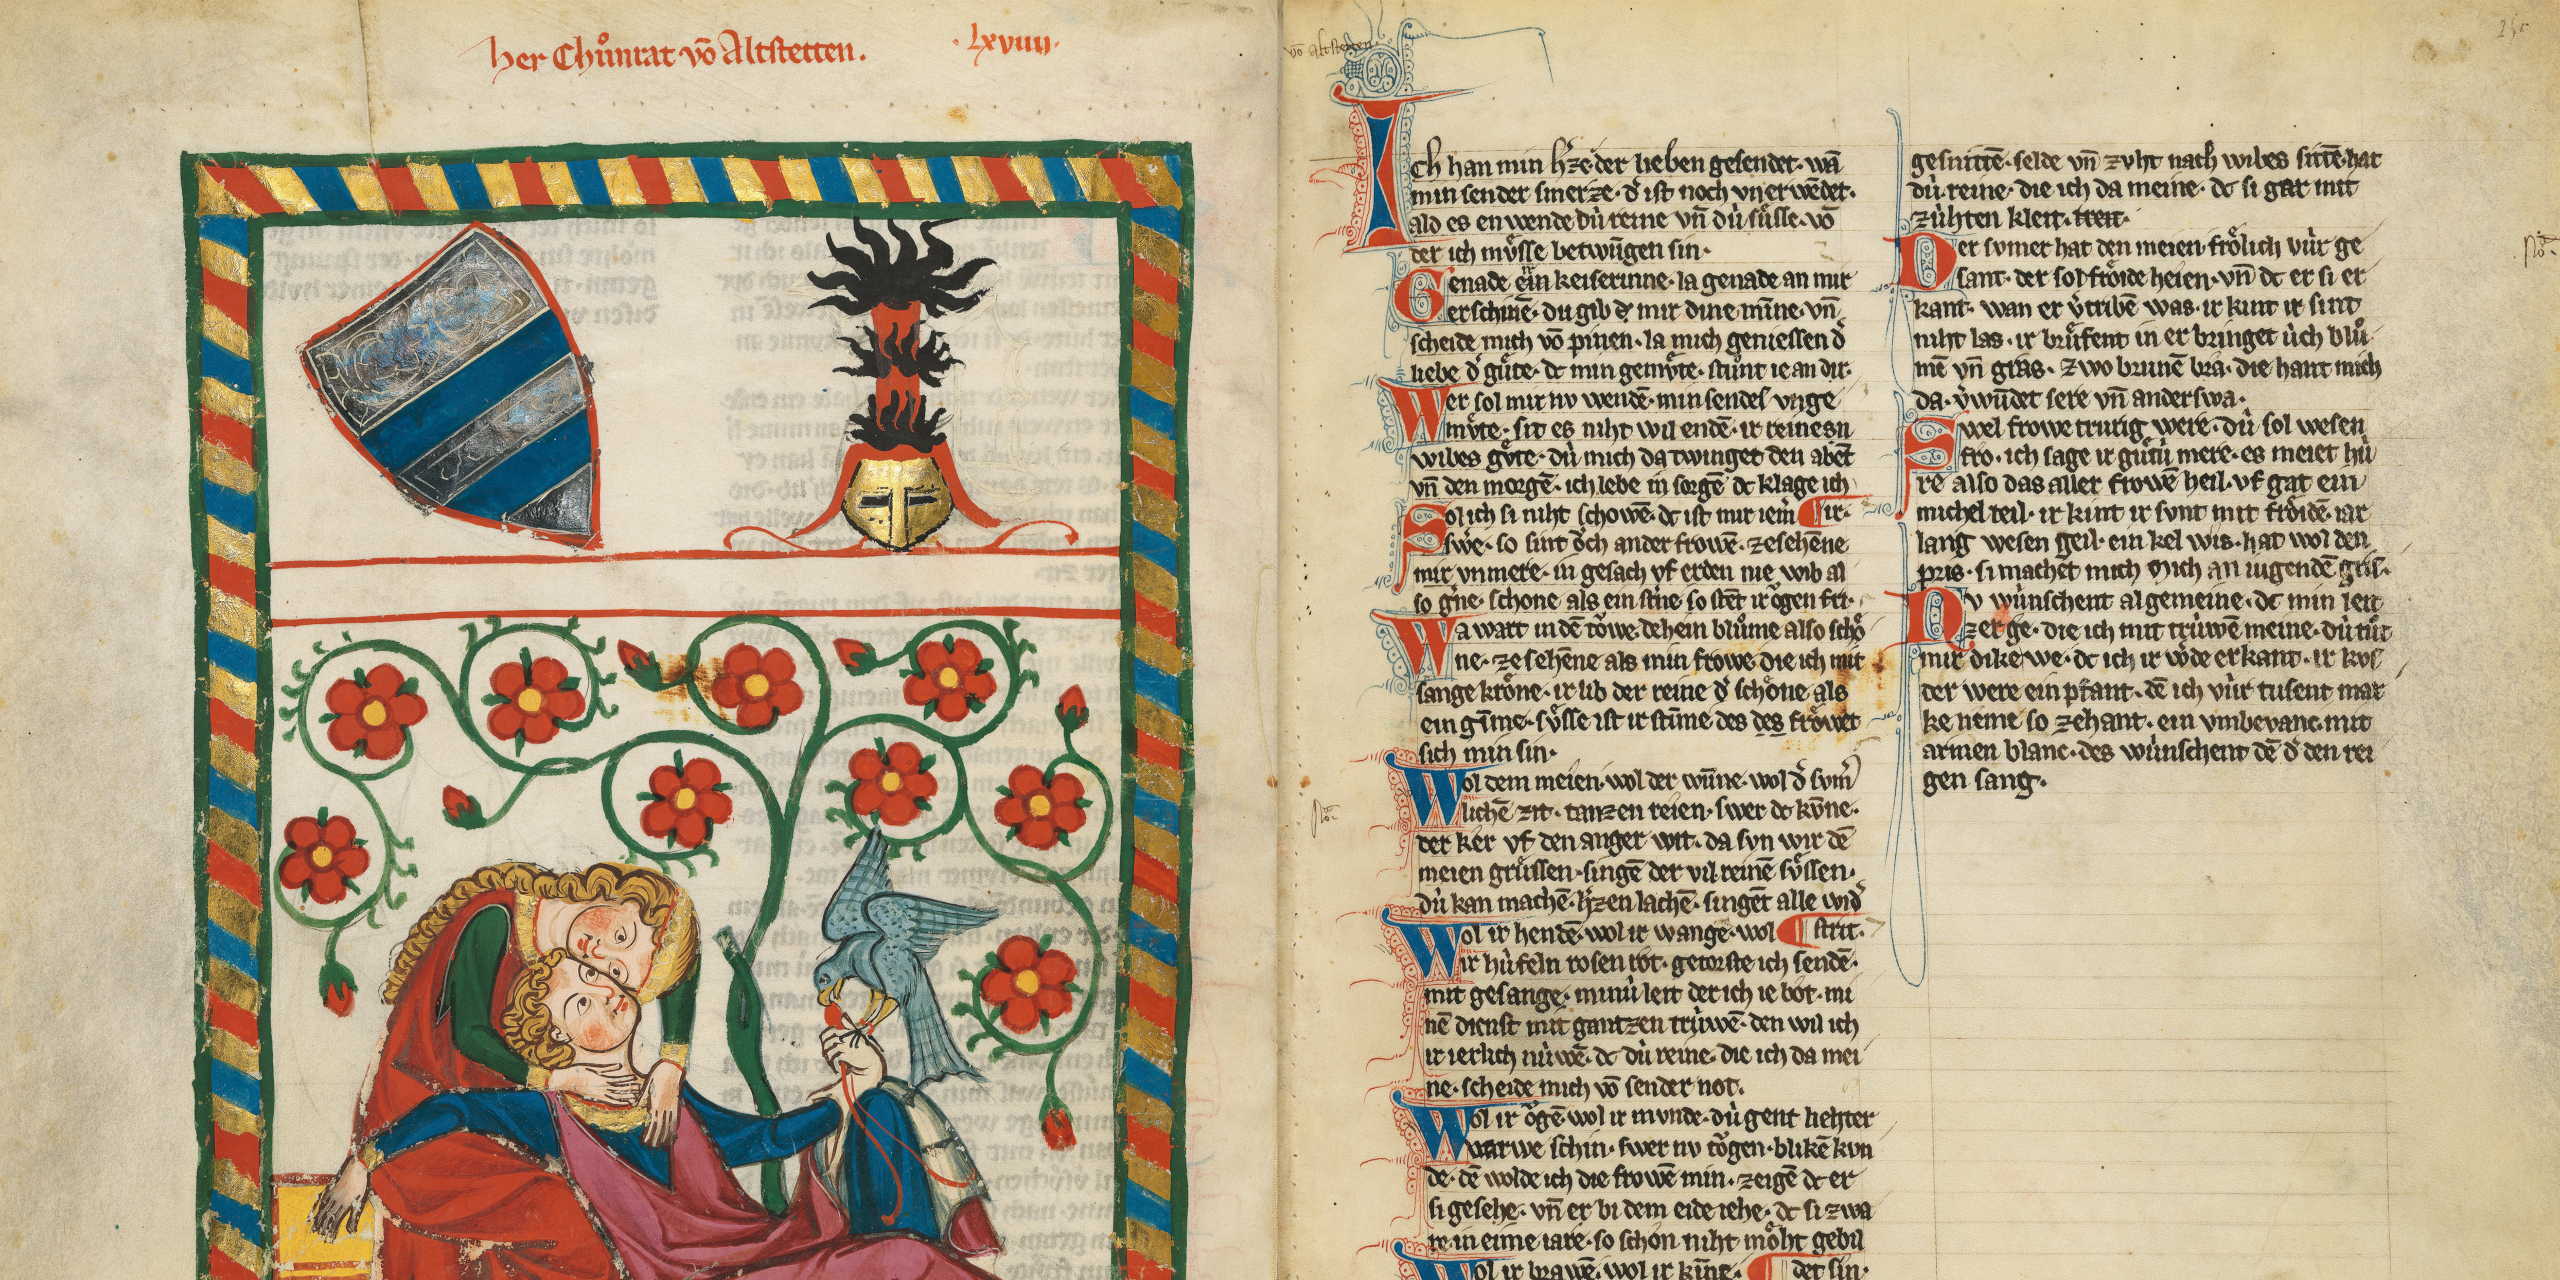 her Chůnrat vō Altstetten.
· lxviiij·
vō altstetten
Ich han min h'ze der lieben gesendet· wā
min sender smerze· d' ist noch vn erwēdet·
ald es en wende dú reine vn̄ dú sůsse· vō
der ich můsse betwngen sin·
Genade ein keiserinne· la genade an mir
erschinē· du gib mir dine mīne· vn̄
scheide mich vō pinen· la mich geniessen d'
liebe d' gůte· dc min gemůte· stůnt ie an dir·
Wer sol mir nv wendē· min sendes vnge
můte· sit es niht wil endē· ir reines
wibes gůte· dú mich da twinget den abēt
vn̄ den morgē· ich lebe in sorgē dc klage ich
Sol ich si niht schowē· dc ist mir iem ¶ ir·
swe· so sint ŏch ander frowē· ze sehēne
mir vnmere· in gesach vf erden nie wib al
so g'ne· schone als ein st'ne so stēt ir ŏgen fri·
Wa wart in dē tŏwe dehein blůme also schŏ
ne· ze sehēne als min frowe die ich mit
sange krŏne· ir lib der reine d' schŏne als
ein gīme· sůsse ist ir stīme des des frŏwet
sich min sin·
Wol dem meien· wol der wn̄ne· wol d' svm'
lichē zit· tanzen reien· swer dc kv̄ne·
der ker vf den anger wit· da svn wir dē
meien grůssen· singē der vil reinē sůssen·
dú kan machē· h'zen lachē· singēt alle wid'
Wol ir hendē· wol ir wangē· wol ¶ strit·
ir húfeln rosen rot· getorste ich sendē·
mit gesange· minú leit der ich ie bot· mi
nē dienst mit gantzen trúwē· den wil ich
ir ierlich núwē· dc dú reine· die ich da mei
ne· scheide mich vō sender not·
Wol ir ŏgē· wol ir mvnde· dú gent liehter
varwe schin· swer nv tŏgen· blikē kvn
de· dē wolde ich die frowē min· zeigē dc er
si gesehe· vn̄ er bi dem eide iehe· dc si zwa
re· in eime iare· so schon niht mŏht gebil
Wol ir brawē· wol ir kīne· ¶ det sin·
gesnittē· selde vn̄ zvht nach wibes sittē· hat
dú reine· die ich da meine· dc si gar mit
zúhten kleit· treit·
Der svmer hat den meien frŏlich vúr ge
sant· der sol frŏide heien· vn̄ dc er si er
kant· wan er v'tribē was· ir kint ir sint
niht las· ir brůfent in er bringet úch blů
mē vn̄ gras· Zwo brunē bra· die hant mich
da· v'wūdet sere vn̄ anderswa·
Swel frowe trurig were· dú sol wesen
fro· ich sage ir gůtú mere· es meiet hú
re also das aller frowē heil· vf gat ein
michel teil· ir kint ir svnt mit frŏidē· iar
lang wesen geil· ein kel wis· hat wol den
pris· si machet mich an iugendē gris·
Dv wúnschent algemeine· dc min leit
zerge· die ich mit trúwē meine· dú tůt
mir dike we· dc ich ir wde erkant· ir kvs
der were ein pfant· dē ich vúr tusent mar
ke neme so zehant· ein vmbevanc mit
armen blanc· des wúnschent dē d' den rei
gen sang·